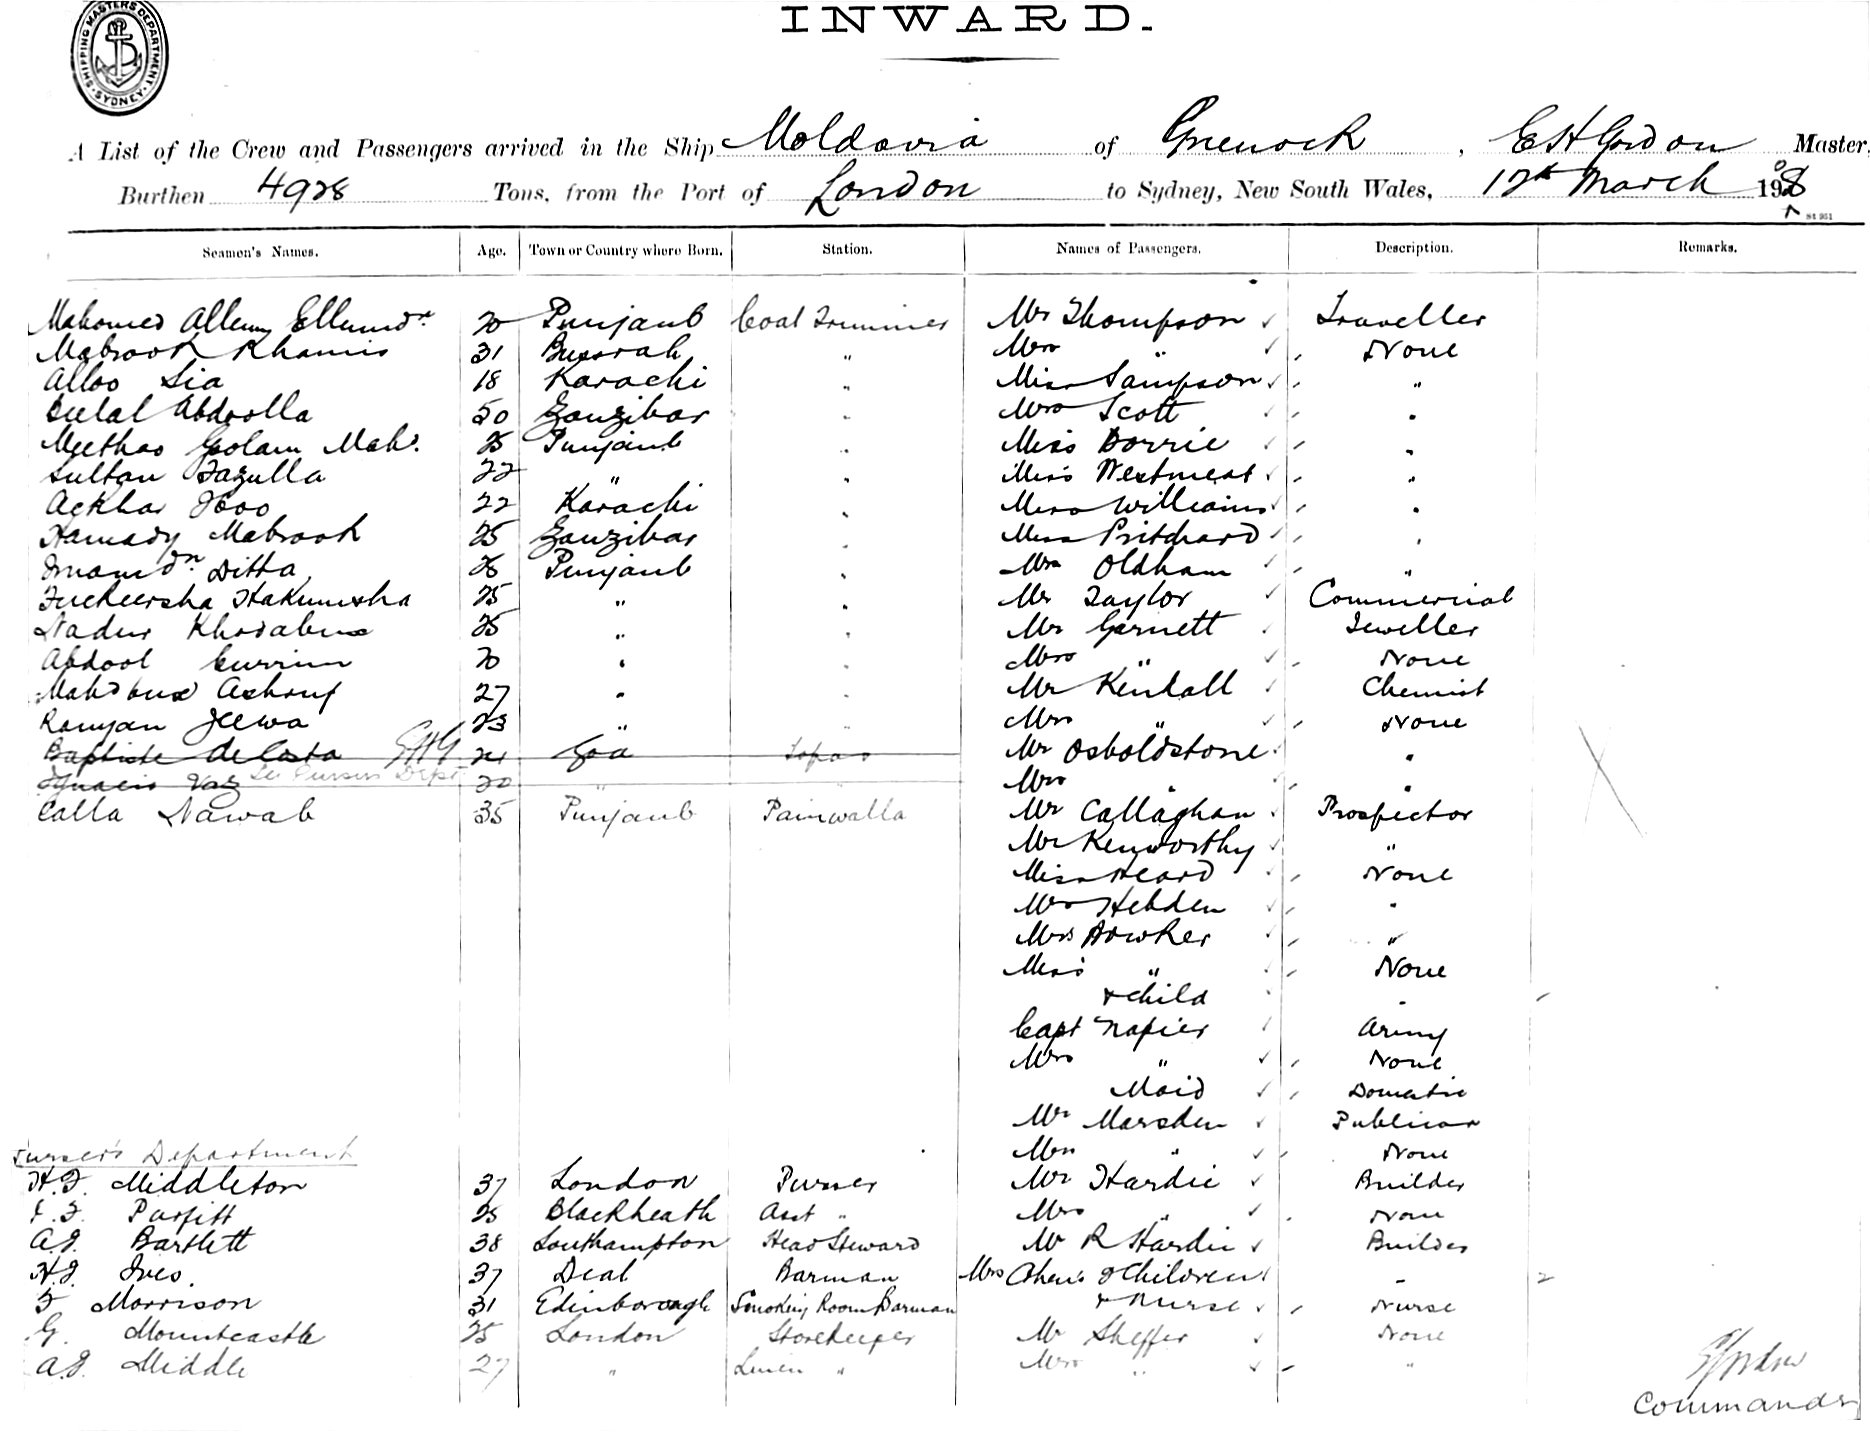 INWARD.
SHIPPING MASTERS DEPARTMENT SYDNEY
A List of the Crew and Passengers arrived in the Ship Moldavia of Greenock, E H Gordon Master,
Burthen 4928 Tons, from the Port of London to Sydney, New South Wales, 12th March 1908
Seamen's Names. Age. Town or Country where Born. Station. Names of Passengers. Description. Remarks.
Mahomed Allem Ellumdn 20 Punjaub Coal Trimmer Mr Thompson Traveller
Mabrook Khamis 31 Bussrah " Mrs " None
Alloo Sia 18 Karachi " Miss Sampson "
Belal Abdoolla 50 Zanzibar " Mrs Scott "
Meethao Goolam Mah. 25 Punjaub " Miss Dorrie "
Sultan Fazulla 22 " " Miss Westmeat "
Ackbar Iboo 22 Karachi " Miss Williams "
Hamady Mabrook 25 Zanzibar " Miss Pritchard "
Imamdn Ditta 26 Punjaub " Mrs Oldham "
Fuckeersha Hakumsha 25 " " Mr Taylor Commercial
Nadur Khodabux 25 " " Mr Garnett Jeweller
Abdool Currim 20 " " Mrs " None
Mahdbux Ashruf 27 " " Mr Kendall Chemist
Ramjan Jeewa 23 " " Mrs " None
Baptiste de Costa EHG 21 Goa Topas Mr Osboldstone "
Ignacio Vaz See Pursers Dept 20 " " Mrs " "
Calla Nawab 35 Punjaub Paniwalla Mr Callaghan Prospector
Mr Kenworthy "
Miss Heard None
Mrs Hebden "
Mrs Bowker "
Miss " None
& child "
Capt Napier Army
Mrs " None
Maid Domestic
Mr Marsden Publican
Purser's Department Mrs " None
H.F. Middleton 37 London Purser Mr Hardie Builder
F. Parfitt 25 Blackheath Asst " Mrs " None
A.J. Bartlett 38 Southampton Head Steward Mr R Hardie Builder
H.J. Ives. 37 Deal Barman Mrs & Children -
F Morrison 31 Edinborough Smoking Room Barman & Nurse Nurse
G. Mountcastle 25 London Storekeeper Mr Sheffer None
A.J. Middle 27 " Linen " Mrs " "
EHGordon
Commander